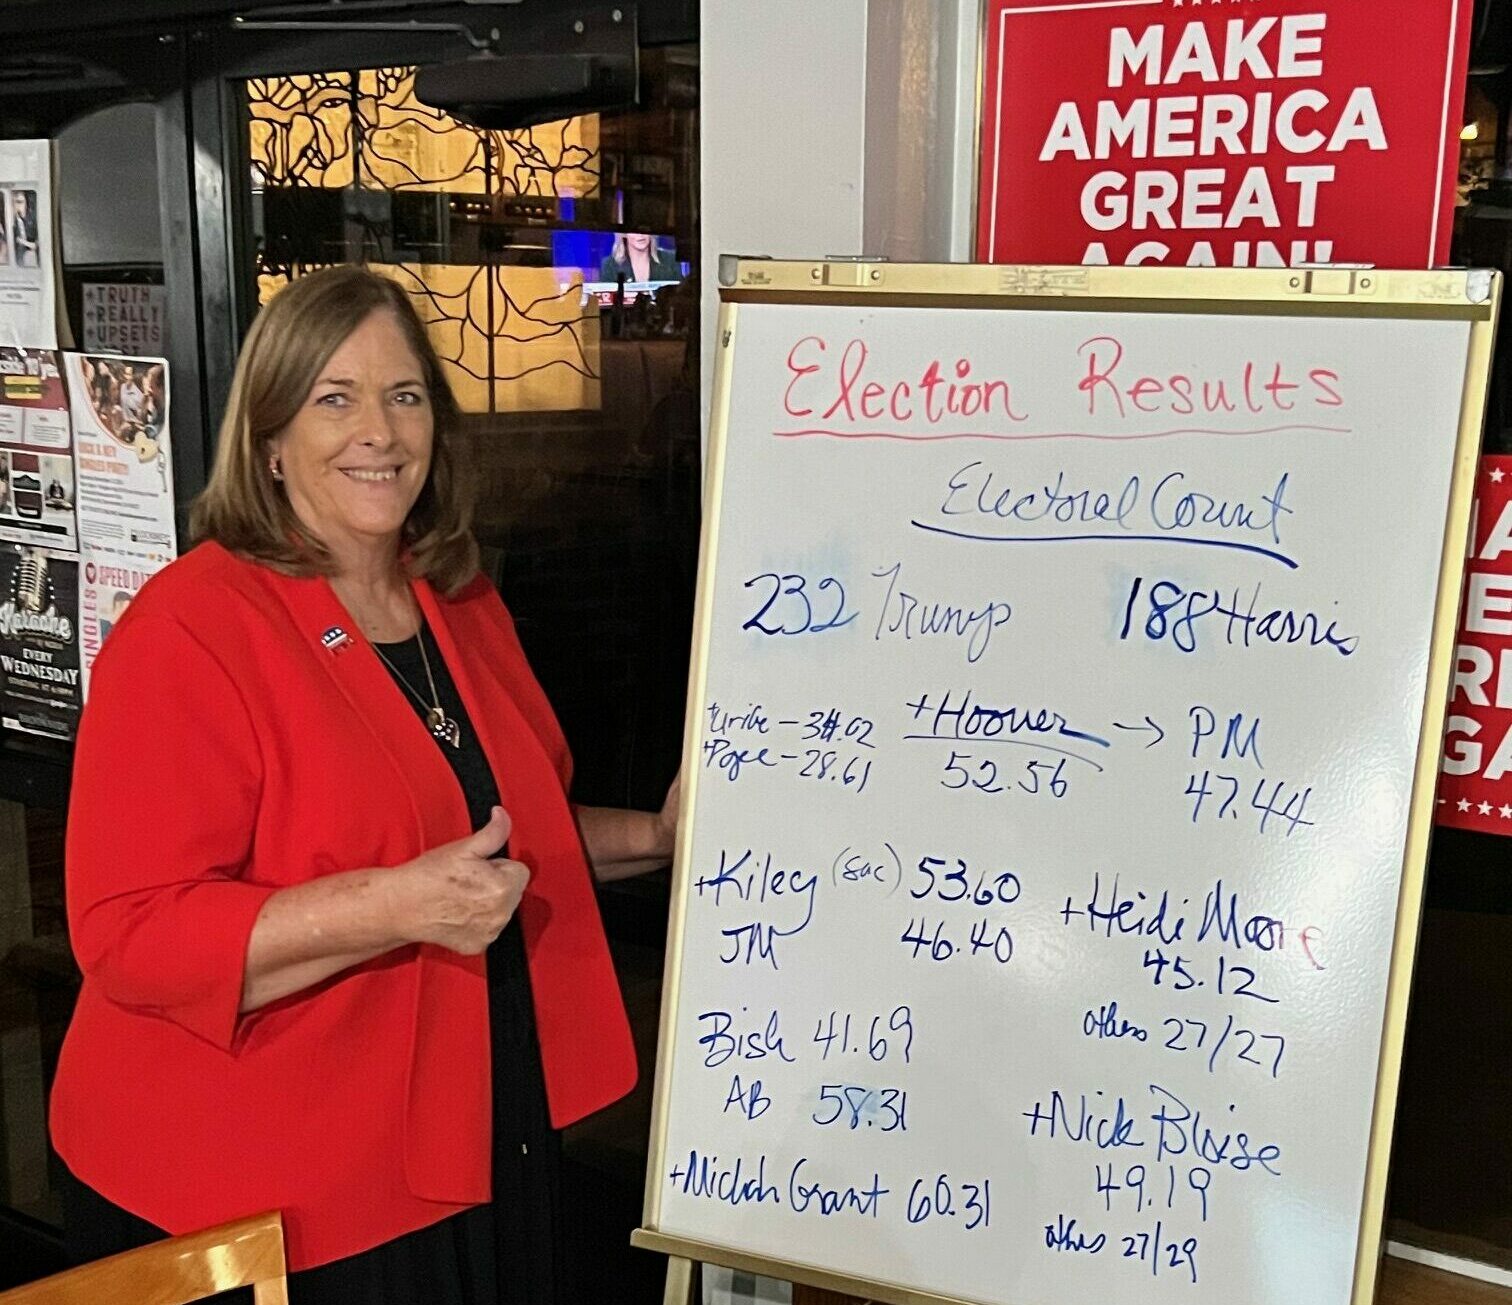 MAKE
AMERICA
GREAT
AGAIN!
Election Results
Electoral Count
232 Trump 188 Harris
+Uribe - 34.02
+Pogee - 28.61
+Hoover → PM
52.56 47.44
+Kiley (Sac) 53.60
JM 46.40
+Heidi Moore
45.12
others 27/27
Bish 41.69
AB 58.31
+Nick Bloise
49.19
others 27/29
+Micah Grant 60.31
TRUTH
REALLY
UPSETS
SPEED DAT
SINGLES
Karaoke
EVERY
WEDNESDAY